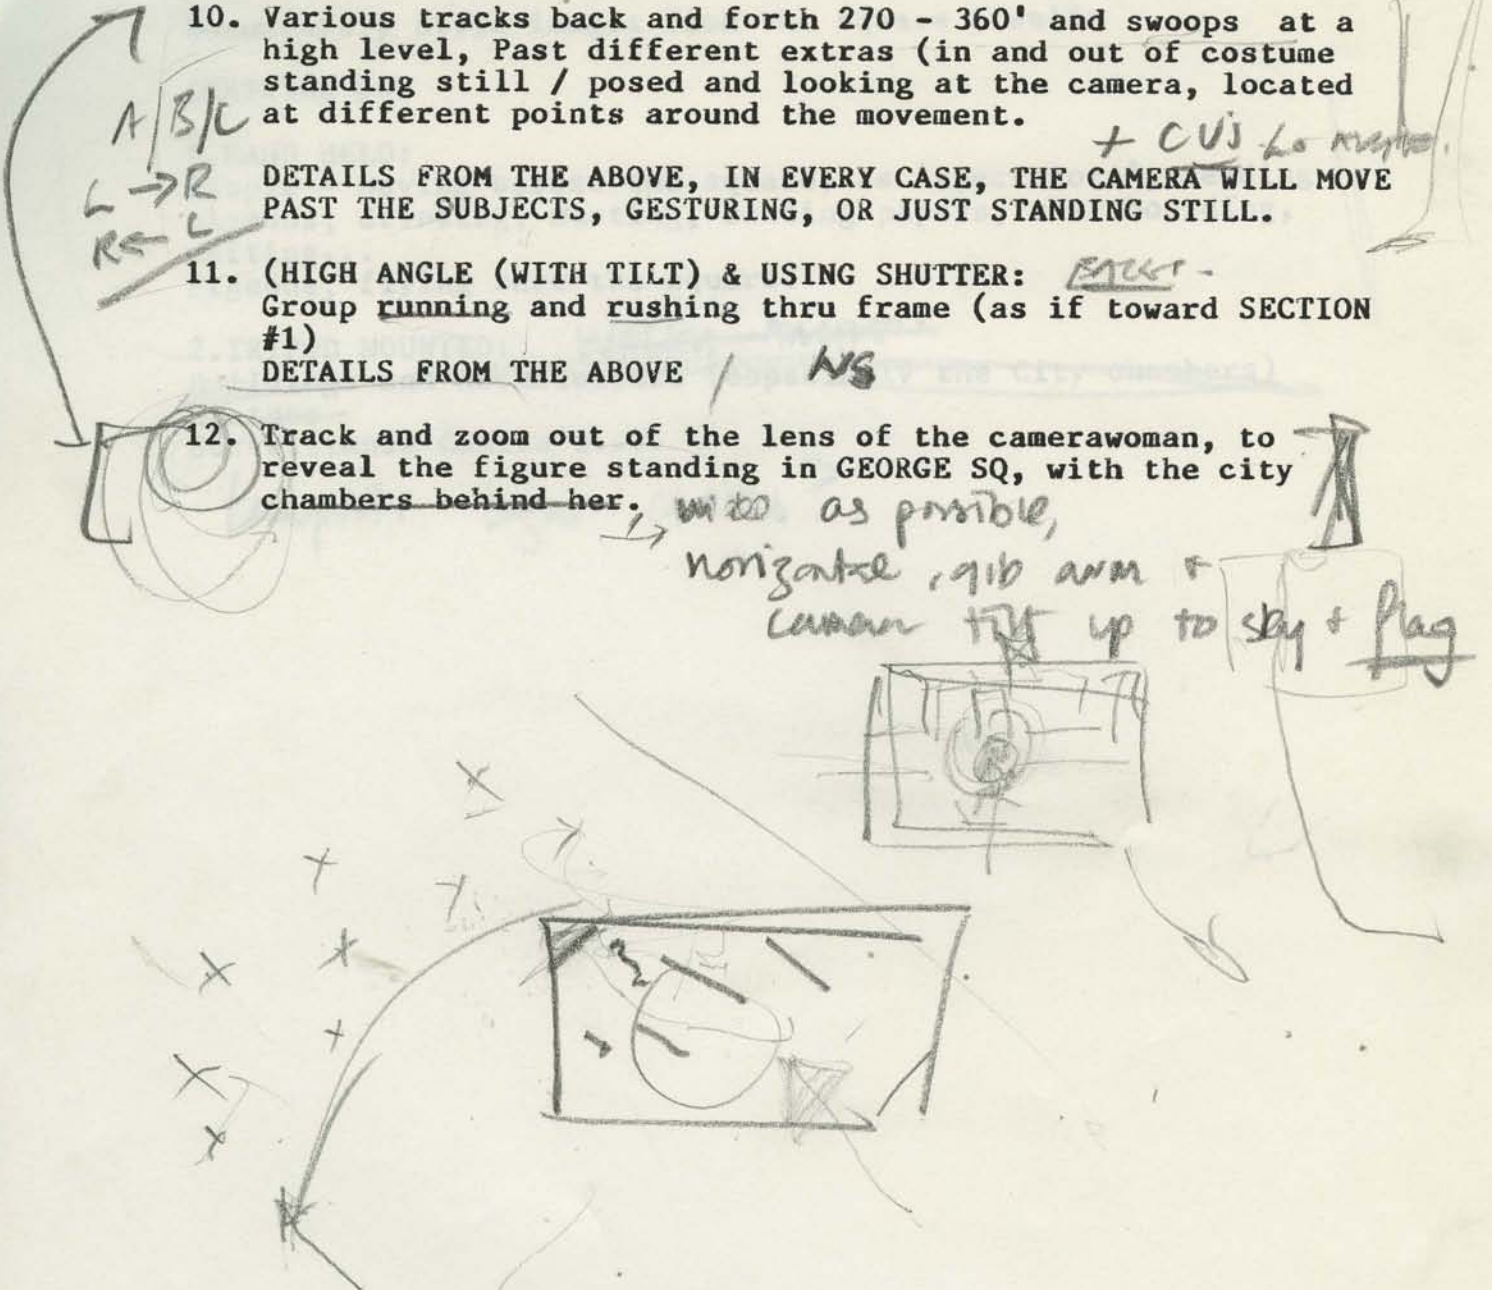 10. Various tracks back and forth 270 - 360' and swoops at a
high level, Past different extras (in and out of costume
standing still / posed and looking at the camera, located
at different points around the movement.
A/B/C
+ CUS Lo
L → R
R ← L
DETAILS FROM THE ABOVE, IN EVERY CASE, THE CAMERA WILL MOVE
PAST THE SUBJECTS, GESTURING, OR JUST STANDING STILL.
11. (HIGH ANGLE (WITH TILT) & USING SHUTTER:
Group running and rushing thru frame (as if toward SECTION
#1)
DETAILS FROM THE ABOVE / NS
12. Track and zoom out of the lens of the camerawoman, to
reveal the figure standing in GEORGE SQ, with the city
chambers behind her.
as possible,
arm +
camera tilt up to sky + flag